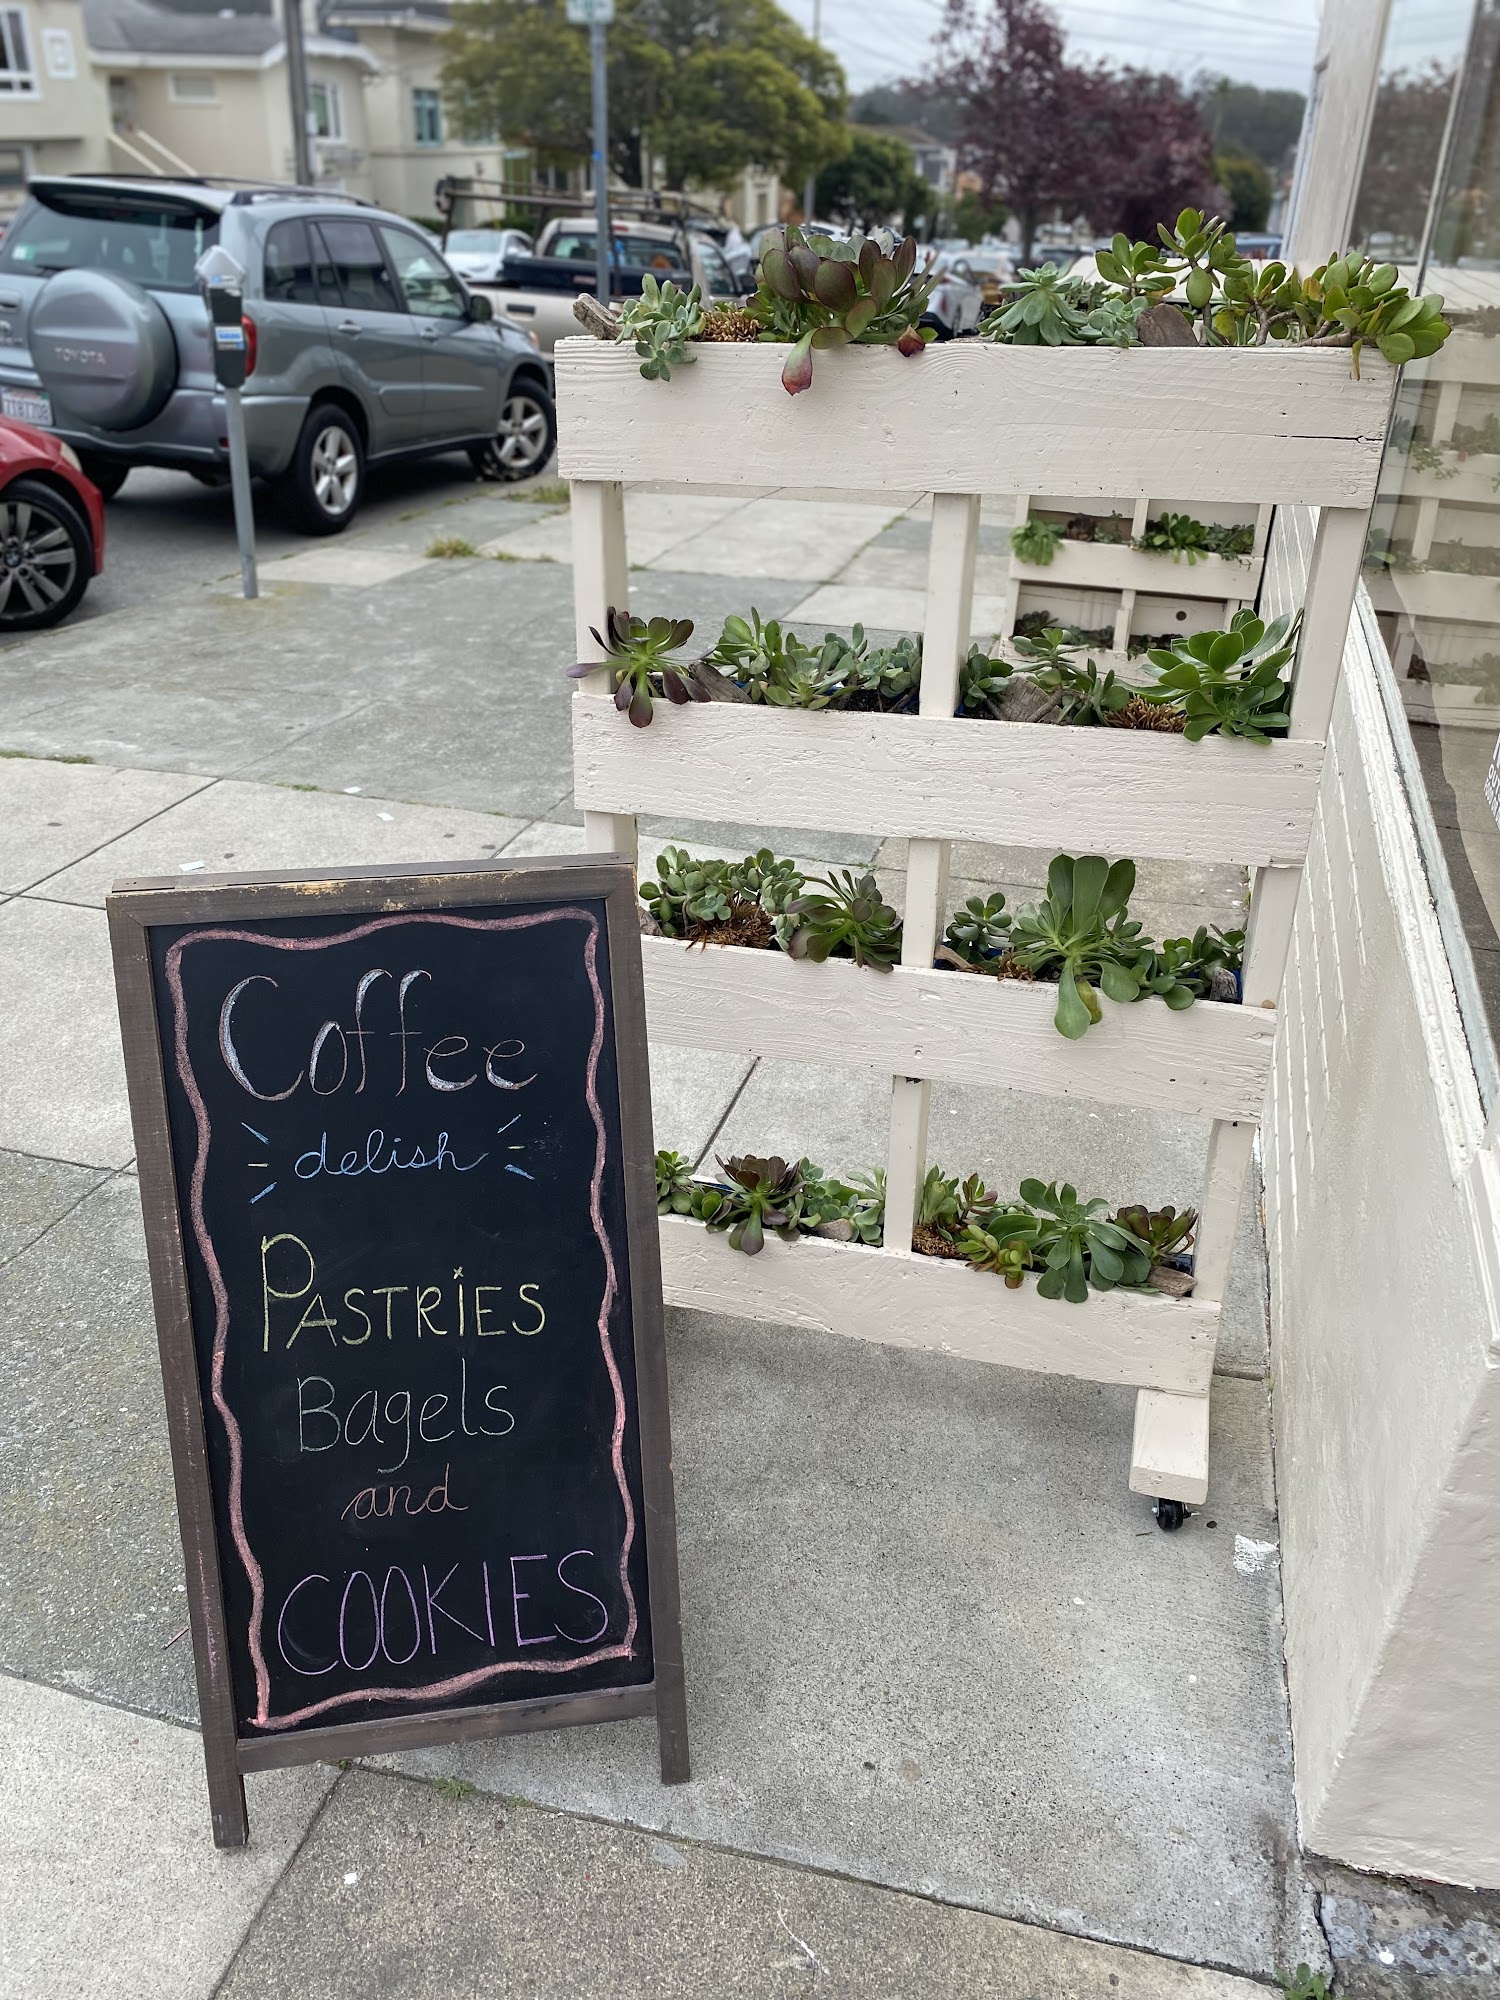 TOYOTA
Coffee
delish
PASTRiES
Bagels
and
COOKIES